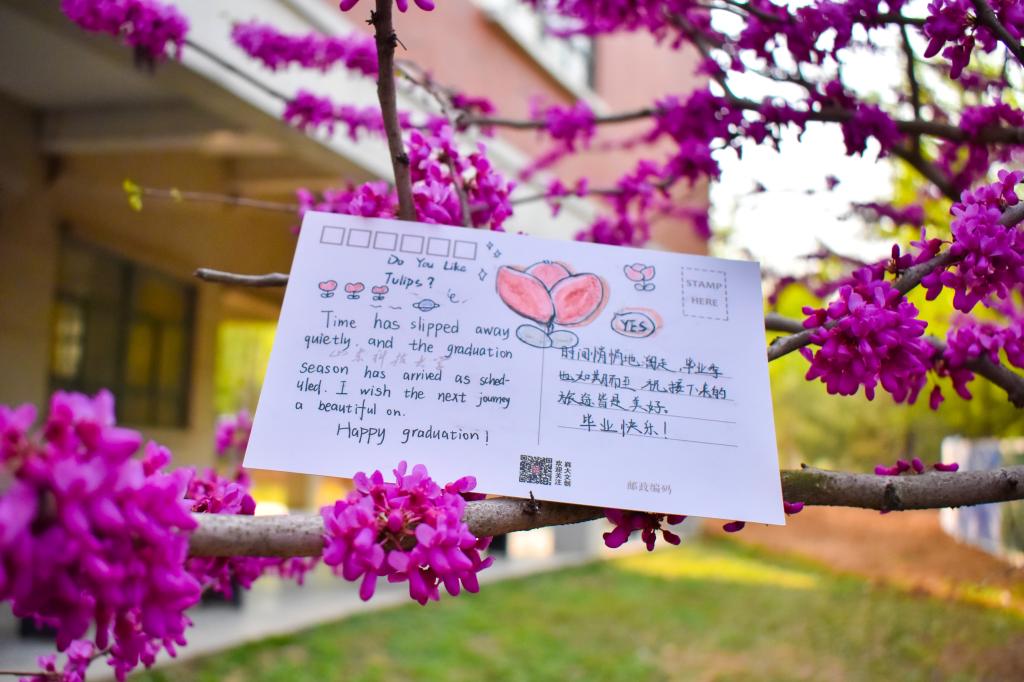 Do You Like
Tulips?
YES
STAMP
HERE
Time has slipped away
quietly, and the graduation
season has arrived as sched-
uled. I wish the next journey
a beautiful on.
Happy graduation!
时间悄悄地溜走,毕业季
也如期而至,祝接下来的
旅途皆是美好。
毕业快乐!
欢迎关注
邮政编码